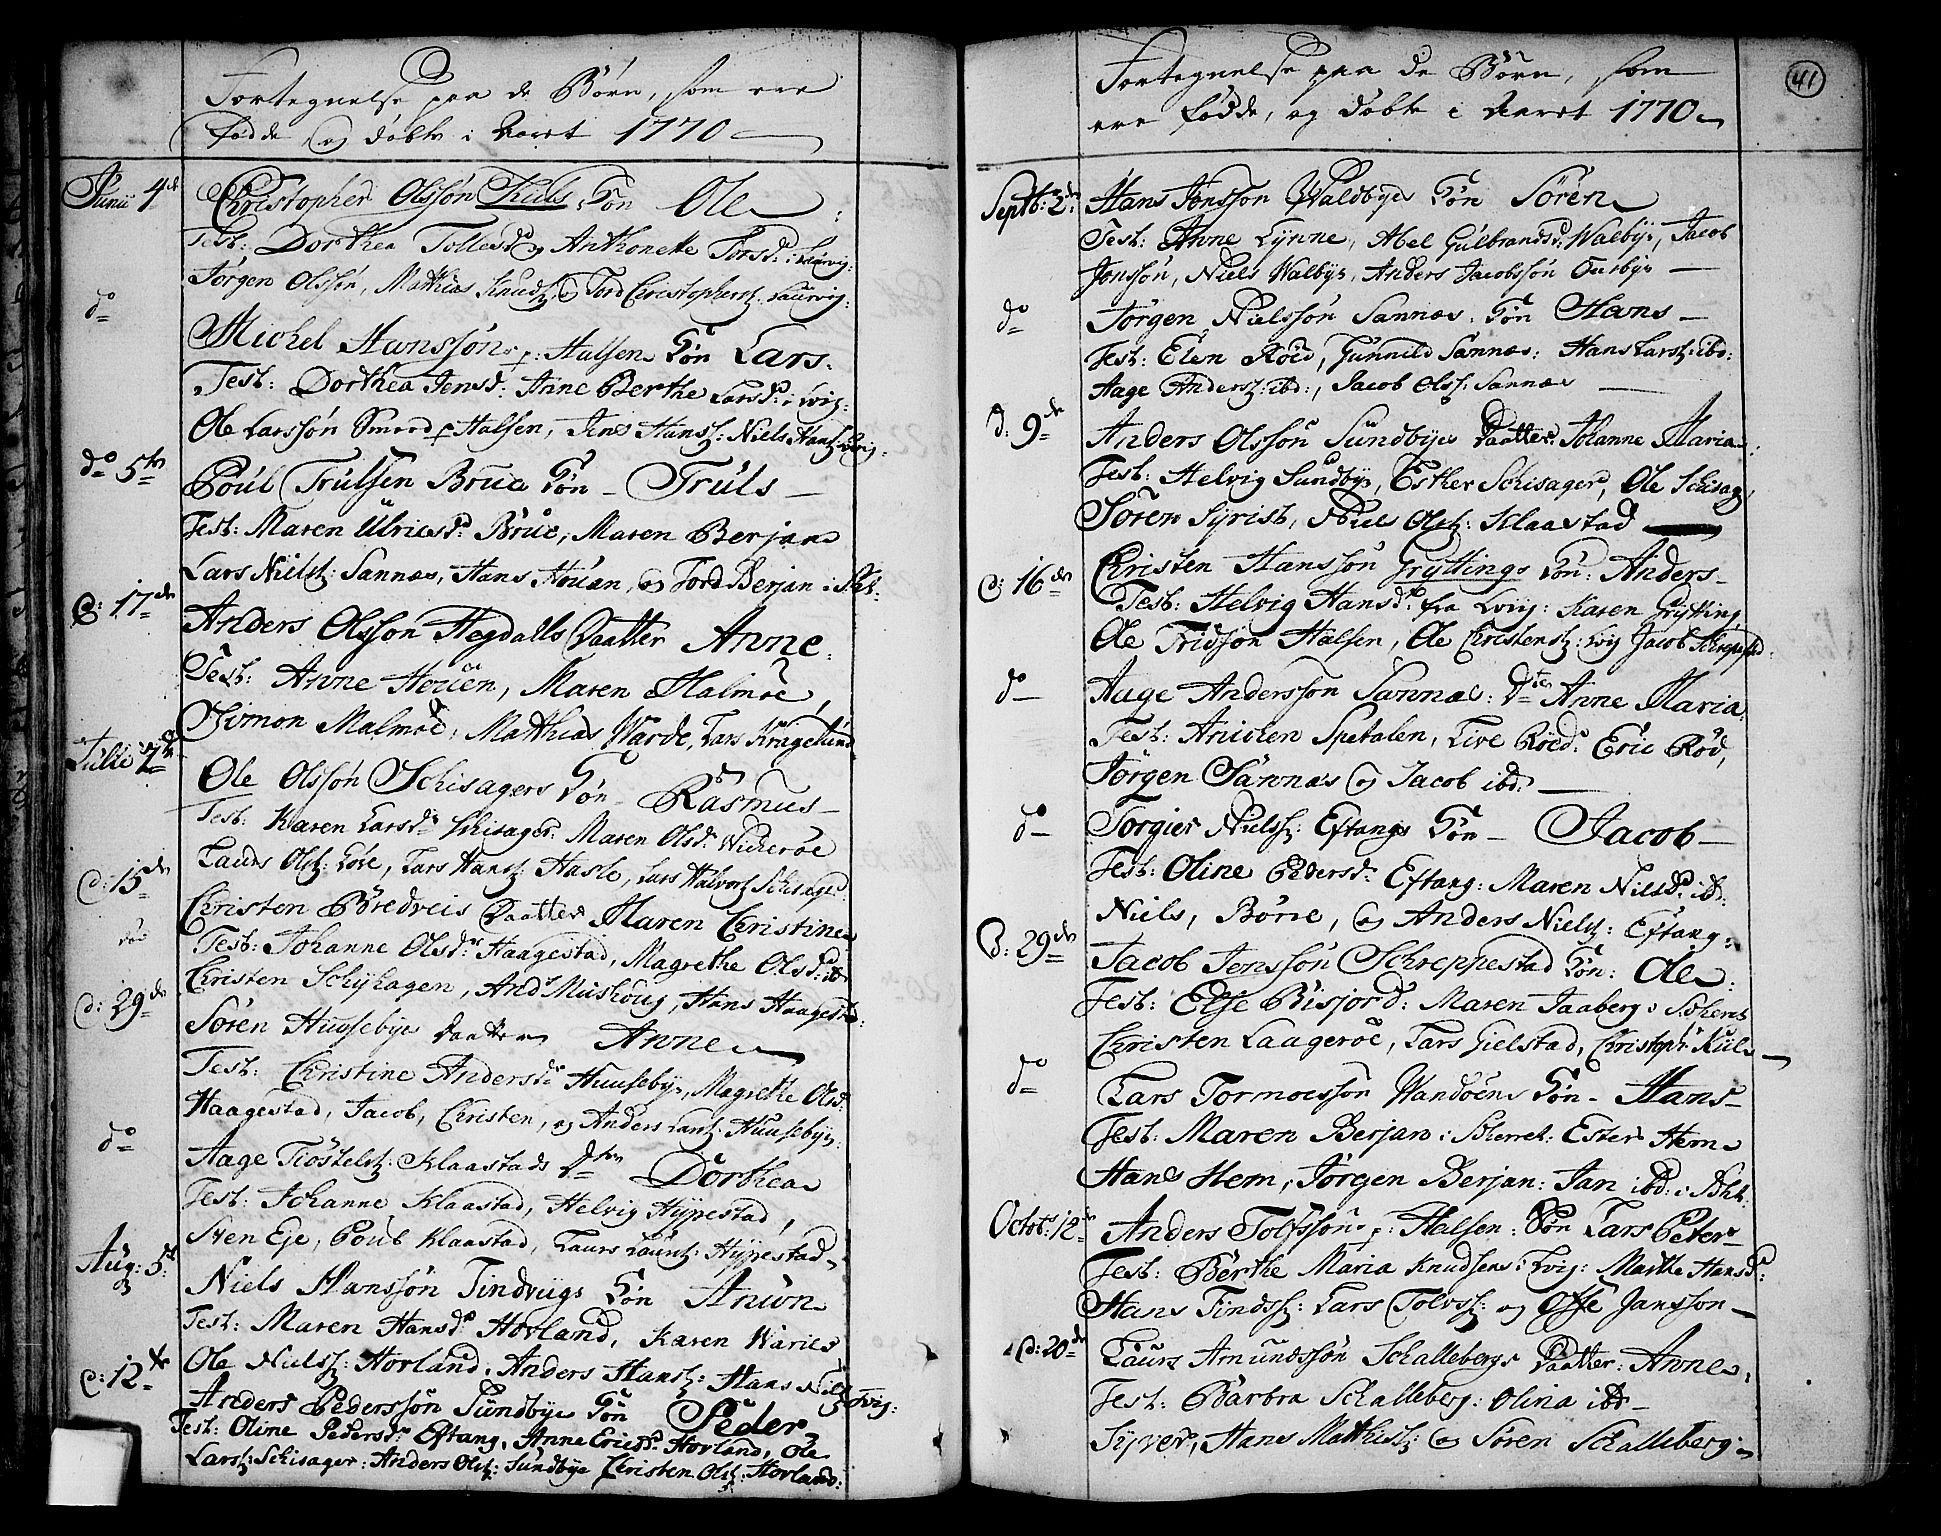 Fortegnelse paa de Börn, som ere
födde og döbte i Aaret 1770
Junii 4de Christopher Olssön Kiels Sön Ole
Test: Dorthea Tollesd: og Anthonette Torsd: i Laurvig:
Jörgen Olssön, Mathias Knuds: og Tord Christophers: Laurvig:
do Michel Hanssön p: Halsen Sön Lars.
Test: Dorthea Jensd: Anne Berthe Larsd: i Lvig:
Ole Larssön Smed p Halsen, Jens Hans: Niels Hans: Lvig:
do 5te Poul Trulsen Brue Sön - Truls -
Test: Maren Ulricsd: Brue, Maren Berjan
Lars Niels: Sannes, Hans Houan, og Tord Berjan i
d: 17de Anders Olsson Hegdalls Daatter Anne.
Test: Anne Houen, Maren Malmöe,
Simon Malmöe, Matthias Warde, Lars Krageslund
Julii Ole Olssön Schisagers Sön - Rasmus -
Test: Karen Larsd: Schisager: Maren Olsd: Wickeröe
Laurs Ols: Löve, Lars Hans: Hasle, Lars Halvors: Schisager
d: 15de Christen Böedreis Daatter Maren Christine
Test: Johanne Olsd: Haagestad, Magrethe Olsd: ib
Christen Schjhagen, And: Muskoug, Hans Haagestd:
d: 29de Sören Huusebye Daatter Anne
Test: Christine Andersd: Huusebye, Magrethe Olsd:
Haagestad, Jacob, Christen, og Anders Lars: Huusebye:
do Aage Töstels: Klaastads Dter Dorthea
Test: Johanne Klaastad, Helvig Hyppestad,
Sven Eje, Poul Klaastad, Laurs Laur: Hyppestad
Aug: 5te Niels Hanssön Tindvigs Sön Anun
Test: Maren Hansd: Hovland, Karen Waries
Ole Niels: Hovland, Anders Hans: Hans Niels: Lvig:
d: 12te Anders Pederssön Sundbye Sön Peder
Test: Oline Pedersd: Eftang, Anne Ericsd: Hovland, Ole
Lars: Schisager: Anders Ols: Sundbye Christen Ols: Hovland:
41
Fortegnelse paa de Börn, som
ere födde, og döbte i Aaret 1770
Septb: 2de Hans Jonsson Waldbye Sön Sören
Test: Anne Lynne, Abel Gulbrandsd: Walbye, Jacob
Jonssön, Niels Walbye, Anders Jacobssön Ousbye
do Jörgen Nielssön Sannes Sön Hans -
Test: Elen Röed, Gunnild Sannes: Hans Lars: ibd:
Aage Anders: ibd:, Jacob Ols: Sannes
d: 9de Anders Olssön Sundbye Daatter Johanne Maria
Test: Helvig Sundbye, Esther Schisager, Ole Schisag:
Sören Syrist, Niels Ols: Klaastad
d: 16de Christen Hanssön Gryttings Sön: Anders -
Test: Helvig Hansd: fra Lvig: Karen Grytting,
Ole Fridsön Halsen, Ole Christens: Lvig Jacob Schreppestad:
do Aage Anderssön Sannes: Dter Anne Maria,
Test: Anichen Spetalen, Live Röed: Eric Röd,
Jörgen Sannes og Jacob ibd.
do Torgier Niels: Eftangs Sön - Jacob -
Test: Oline Pedersd: Eftang: Maren Nielsd: ib:
Niels, Börre, og Anders Niels: Eftang:
d: 29de Jacob Jenssön Schreppestad Sön: Ole:
Test: Else Bisjord: Maren Jaaberg:
Christen Laageröe, Lars Gielstad, Christoph: Kiil
do Lars Tormoessön Wandöens Sön - Hans -
Test: Maren Berjan i Scherret: Ester Hem
Hans Hem, Jörgen Berjan: Jan ibd:
Octob: 12te Anders Tolfssön p: Halsen: Sön Lars Peter -
Test: Berthe Maria Knudsens i Lvig: Marthe Hansd:
Hans Finds: Lars Tolvs: og Offe Jansson -
d: 20de Laurs Amundssön Schallebergs Daatter: Anne,
Test: Barbra Schalleberg: Olina ib -
Syver, Hans Mathis: og Sören Schalleberg: